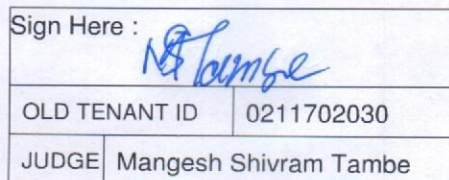 Sign Here :
MSTambe
OLD TENANT ID 0211702030
JUDGE Mangesh Shivram Tambe